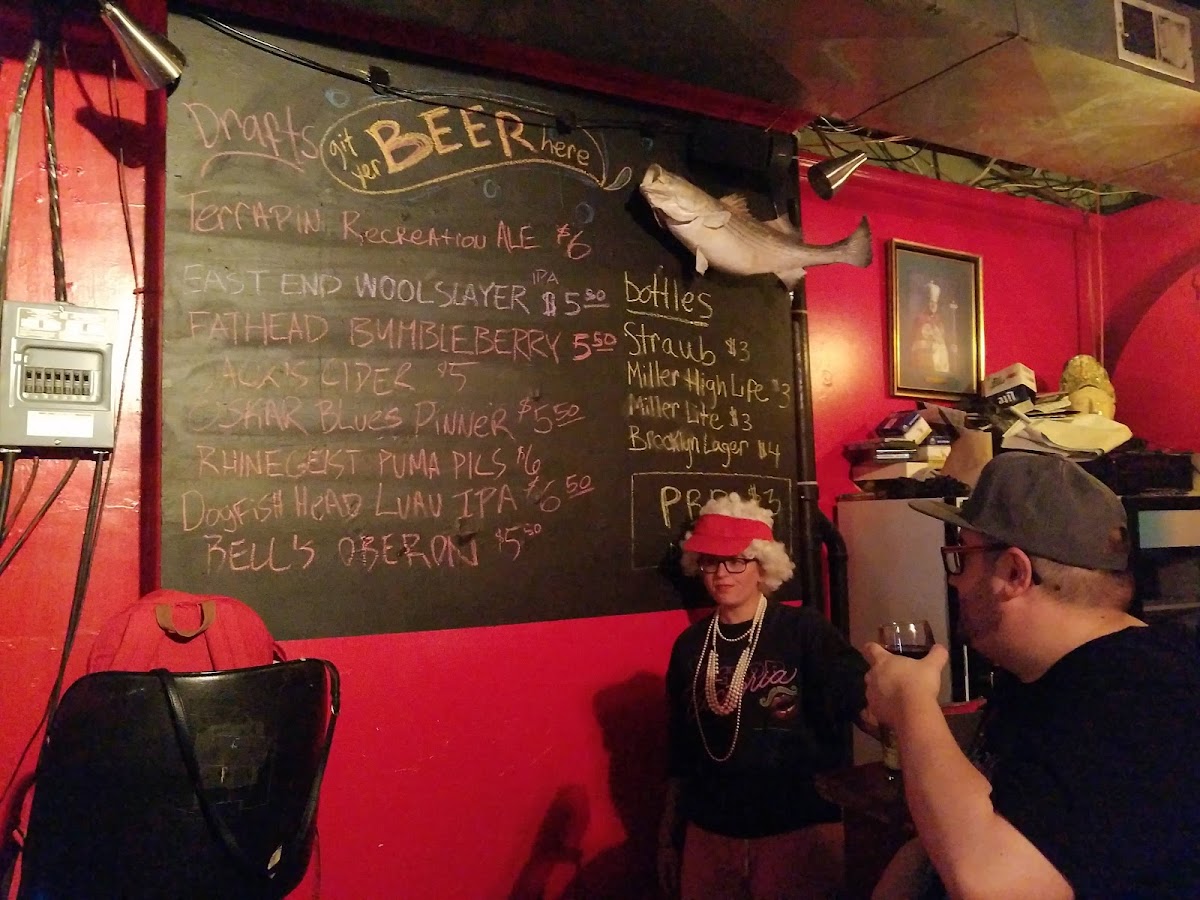 Drafts
git yer BEER here
TERRAPIN RECREATION ALE $6
EAST END WOOLSLAYER IPA $5 50
FATHEAD BUMBLEBERRY 5 50
JACK'S CIDER $5
OSKAR BLUES PINNER $5 50
RHINEGEIST PUMA PILS $6
DOGFISH HEAD LUAU IPA $6 50
BELL'S OBERON $5 50
bottles
Straub $3
Miller High Life $3
Miller Lite $3
Brooklyn Lager $4
PBR $3